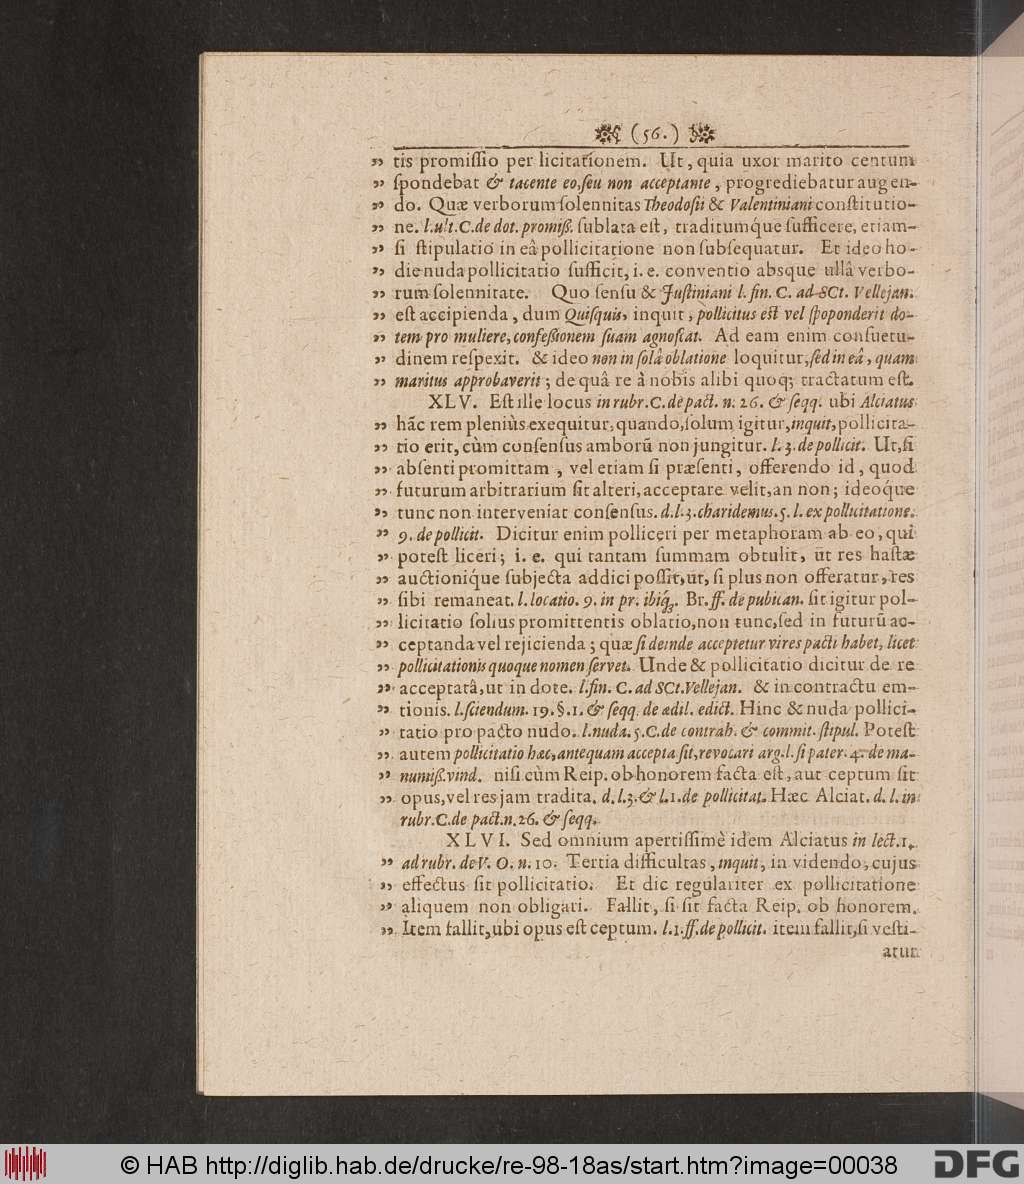 (56.)
„ tis promiſſio per licitationem. Ut, quia uxor marito centum
„ ſpondebat & tacente eo, ſeu non acceptante, progrediebatur augen-
„ do. Quæ verborum ſolennitas Theodoſii & Valentiniani conſtitutio-
„ ne. l. ult. C. de dot. promiß. ſublata eſt, traditumq́ue ſufficere, etiam-
„ ſi ſtipulatio in eâ pollicitatione non ſubſequatur. Et ideo ho-
„ die nuda pollicitatio ſufficit, i. e. conventio absque ullâ verbo-
„ rum ſolennitate. Quo ſenſu & Juſtiniani l. fin. C. ad SCt. Vellejan.
„ eſt accipienda, dum Quiſquis, inquit, pollicitus eſt vel ſpoponderit do-
„ tem pro muliere, confeßionem ſuam agnoſcat. Ad eam enim conſuetu-
„ dinem reſpexit. & ideo non in ſolâ oblatione loquitur, ſed in eâ, quam
„ maritus approbaverit; de quâ re à nobis alibi quoq; tractatum eſt.
XLV. Eſt ille locus in rubr. C. de pact. n. 26. & ſeqq. ubi Alciatus
„ hãc rem pleniùs exequitur, quando, ſolum igitur, inquit, pollicita-
„ tio erit, cùm conſenſus amborũ non jungitur. l. 3. de pollicit. Ut, ſi
„ abſenti promittam, vel etiam ſi præſenti, offerendo id, quod
„ futurum arbitrarium ſit alteri, acceptare velit, an non; ideoq́ue
„ tunc non interveniat conſenſus. d. l. 3. charidemus. 5. l. ex pollicitatione.
„ 9. de pollicit. Dicitur enim polliceri per metaphoram ab eo, qui
„ poteſt liceri; i. e. qui tantam ſummam obtulit, ut res haſtæ
„ auctioniq́ue ſubjecta addici poſſit, ut, ſi plus non offeratur, res
„ ſibi remaneat. l. locatio. 9. in pr. ibiq́; Br. ff. de pubican. ſit igitur pol-
„ licitatio ſolius promittentis oblatio, non tunc, ſed in futurũ ac-
„ ceptanda vel rejicienda; quæ ſi deinde acceptetur vires pacti habet, licet
„ pollicitationis quoque nomen ſervet. Unde & pollicitatio dicitur de re
„ acceptatâ, ut in dote. l. fin. C. ad SCt. Vellejan. & in contractu em-
„ tionis. l. ſciendum. 19. §. 1. & ſeqq. de ædil. edict. Hinc & nuda pollici-
„ tatio pro pacto nudo. l. nuda. 5. C. de contrah. & commit. ſtipul. Poteſt
„ autem pollicitatio hæc, antequam accepta ſit, revocari arg. l. ſi pater. 4. de ma-
„ numiß. vind. niſi cùm Reip. ob honorem facta eſt, aut ceptum ſit
„ opus, vel res jam tradita. d. l. 3. & l. 1. de pollicitat. Hæc Alciat. d. l. in
rubr. C. de pact. n. 26. & ſeqq.
XLVI. Sed omnium apertiſſimè idem Alciatus in lect. 1.
„ ad rubr. de V. O. n. 10. Tertia difficultas, inquit, in videndo, cujus
„ effectus ſit pollicitatio. Et dic regulariter ex pollicitatione
„ aliquem non obligari. Fallit, ſi ſit facta Reip. ob honorem.
„ Item fallit, ubi opus eſt ceptum. l. 1. ff. de pollicit. item fallit, ſi veſti-
atur
© HAB http://diglib.hab.de/drucke/re-98-18as/start.htm?image=00038
DFG